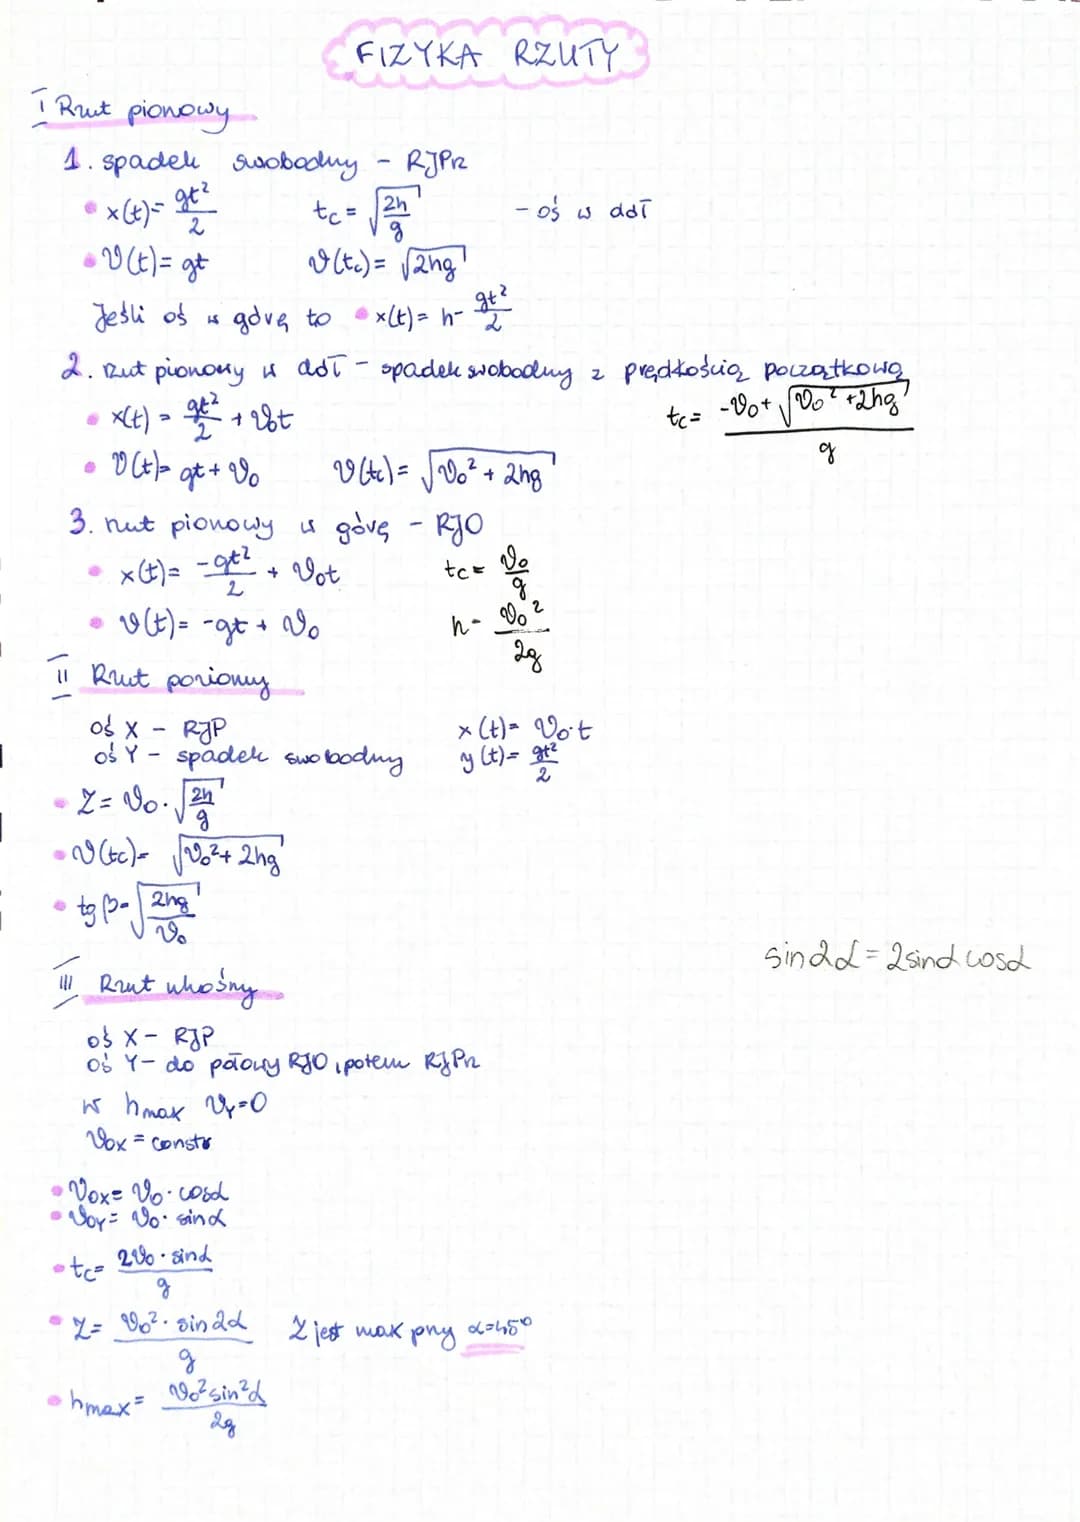 FIZYKA RZUTY
I Rzut pionowy
1. spadek swobodny - RJPrz
• x(t)= gt²/2    tc = √(2h/g)    - oś w dół
• v(t)= gt    v(tc)= √(2hg)
Jeśli oś w górę to • x(t)= h- gt²/2
2. rzut pionowy w dół - spadek swobodny z prędkością początkową
• x(t) = gt²/2 + v₀t    tc= (-v₀+√(v₀²+2hg))/g
• v(t)= gt + v₀    v(tc)= √(v₀²+2hg)
3. rzut pionowy w górę - RJO
• x(t)= -gt²/2 + v₀t    tc= v₀/g
• v(t)= -gt + v₀    h= v₀²/2g
II Rzut poziomy
oś X - RJP    x(t)= v₀·t
oś Y - spadek swobodny    y(t)= gt²/2
• Z= v₀·√(2h/g)
• v(tc)= √(v₀²+2hg)
• tg β= √(2hg/v₀)
sin2α = 2sinα cosα
III Rzut ukośny
oś X - RJP
oś Y- do połowy RJO, potem RJPrz
w hmax vY=0
v₀x = const
• v₀x= v₀·cosα
• v₀Y= v₀·sinα
• tc= 2v₀·sinα/g
• Z= v₀²·sin2α/g    Z jest max przy α=45°
• hmax= v₀²sin²α/2g